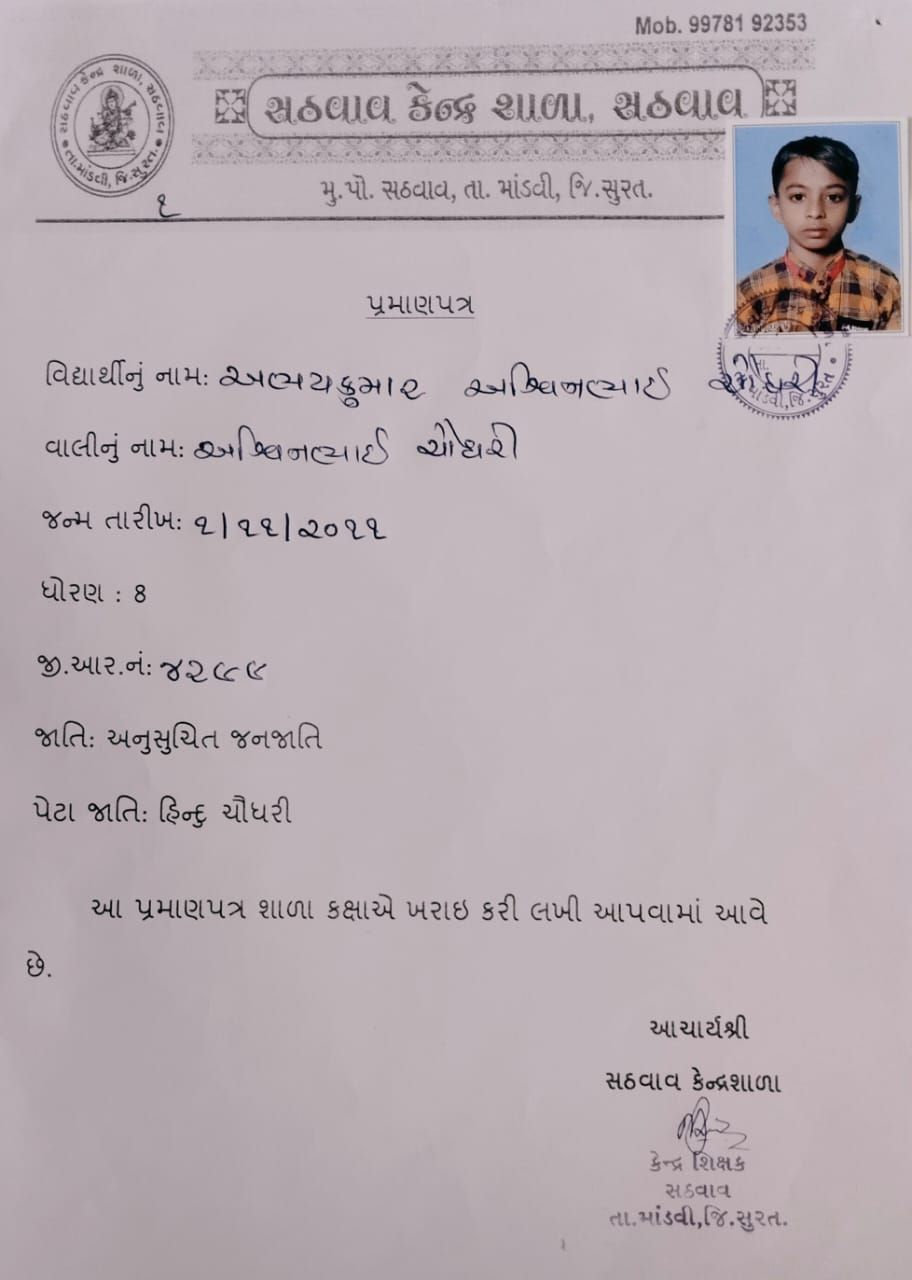 Mob. 99781 92353
સઠવાવ કેન્દ્ર શાળા, સઠવાવ
સઠવાવ કેન્દ્ર શાળા, સઠવાવ
તા.માંડવી, જિ.સુરત.
મુ.પો. સઠવાવ, તા. માંડવી, જિ.સુરત.
૧
પ્રમાણપત્ર
વિદ્યાર્થીનું નામ: અભયકુમાર અશ્વિનભાઈ ચૌધરી
માંડવી, જિ.સુરત
વાલીનું નામ: અશ્વિનભાઈ ચૌધરી
જન્મ તારીખ: ૧/૧૧/૨૦૧૧
ધોરણ : 8
જી.આર.નં: ૪૨૯૯
જાતિ: અનુસુચિત જનજાતિ
પેટા જાતિ: હિન્દુ ચૌધરી
આ પ્રમાણપત્ર શાળા કક્ષાએ ખરાઇ કરી લખી આપવામાં આવે
છે.
આચાર્યશ્રી
સઠવાવ કેન્દ્રશાળા
કેન્દ્ર શિક્ષક
સઠવાવ
તા.માંડવી,જિ.સુરત.